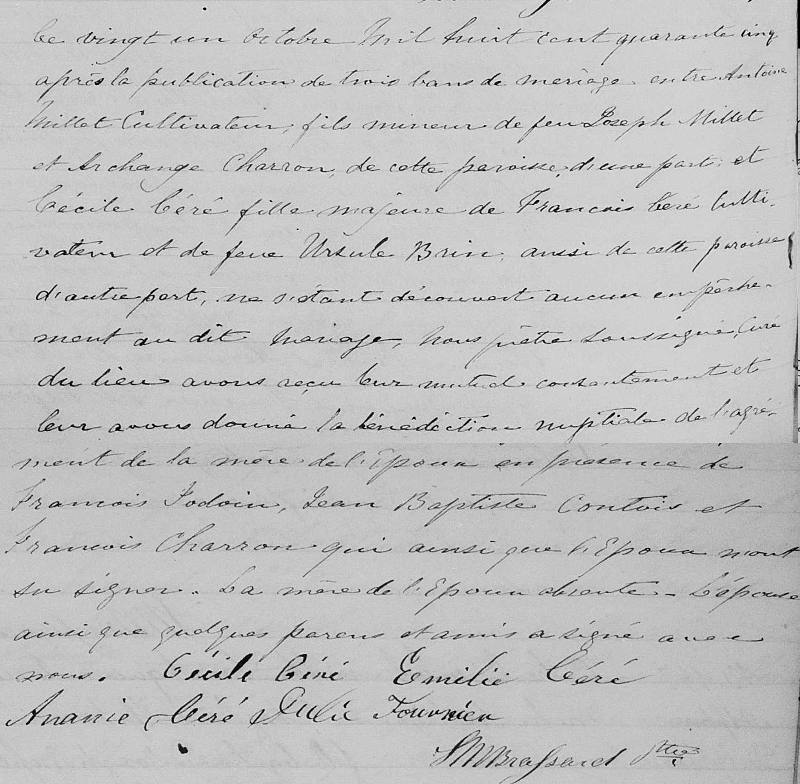 Le vingt un Octobre Mil huit cent quarante cinq
après la publication de trois bans de mariage entre Antoine
Millet Cultivateur, fils mineur de feu Joseph Millet
et Archange Charron, de cette paroisse, d'une part; et
Cécile Céré fille majeure de Francois Céré Culti-
vateur et de feue Ursule Brin, aussi de cette paroisse
d'autre part, ne s'étant découvert aucun empêche-
ment au dit mariage, Nous prêtre soussigné, Curé
du lieu avons reçu leur mutuel consentement et
leur avons donné la bénédiction nuptiale de l'agré-
ment de la mère de l'Epoux en présence de
Francois Jodoin, Jean Baptiste Contois et
Francois Charron qui ainsi que l'Epoux n'ont
su signer. La mère de l'Epoux absente - L'épouse
ainsi que quelques parens et amis a signé avec
nous. Cécile Céré Emilie Céré
Ananie Céré Julie Fournier
Brassard Ptre